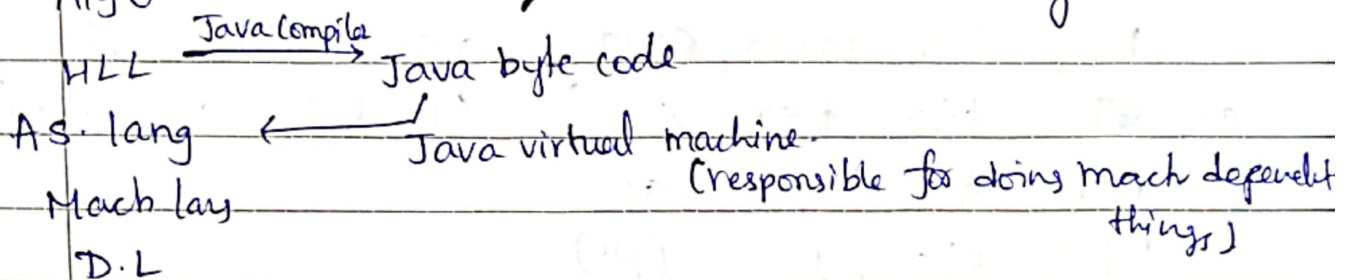 Java Compiler
HLL Java byte code
As. lang Java virtual machine.
(responsible for doing mach dependent
Mach lay
things)
D.L